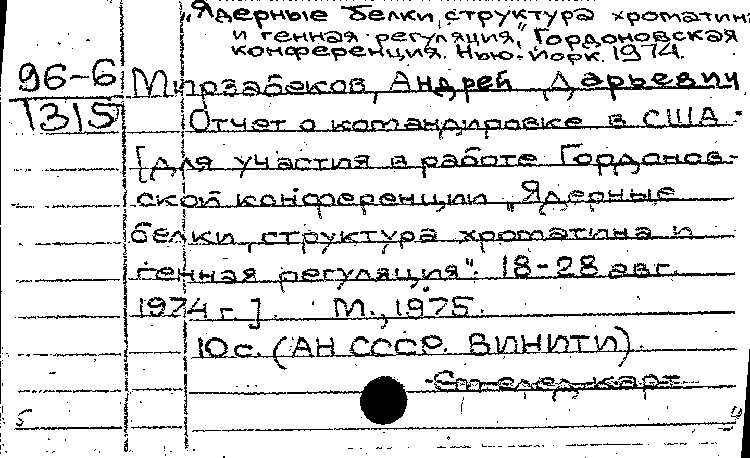 „Ядерные белки, структура хроматина
и генная регуляция", Гордоновская
конференция. Нью-Йорк. 1974.
96-6 Мирзабеков, Андрей Дарьевич
1315 Отчет о командировке в США
[для участия в работе Гордонов-
ской конференции „Ядерные
белки, структура хроматина и
генная регуляция". 18-28 авг.
1974 г.] М., 1975.
10с. (АН СССР. ВИНИТИ).
5